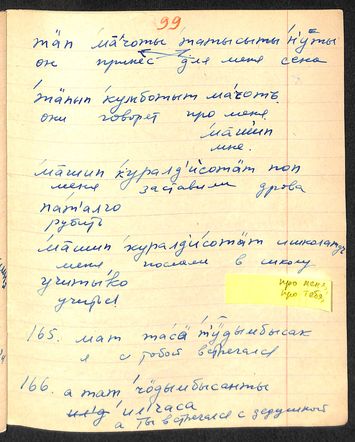 99
тӓп мāчоты татысыты н'ӯты
он принёс для меня сена
тӓпын кумботыт мāчоть
они говорят про меня
мāшип
мне.
мāшип куралд'исотӓт поп
меня заставили дрова
пачалго
рубить
мāшип куралд'исотӓт школанд
меня послали в школу
учитыко
учиться
про меня,
про тебя,
165. мат тасӓ тӱдымбысак
я с тобой встречался
166. а тат чӧдымбысанты
ил'часа
а ты встречался с дедушкой